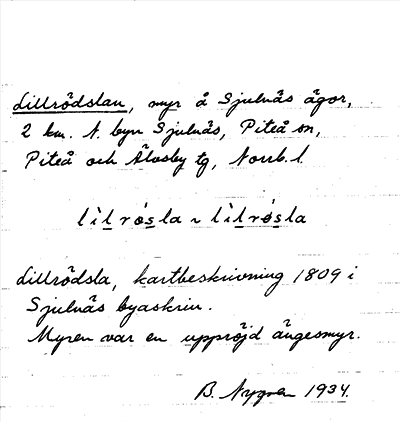 Lillrödslan, myr å Sjulnäs ägor,
2 km. N. byn Sjulnäs, Piteå sn,
Piteå och Älvsby tg, Norrb. l.
lìlrósla ~ lìlrósla
Lillrödsla, kartbeskrivning 1809 i
Sjulnäs byaskrin.
Myren var en uppröjd ängesmyr.
B. Nygren 1934.